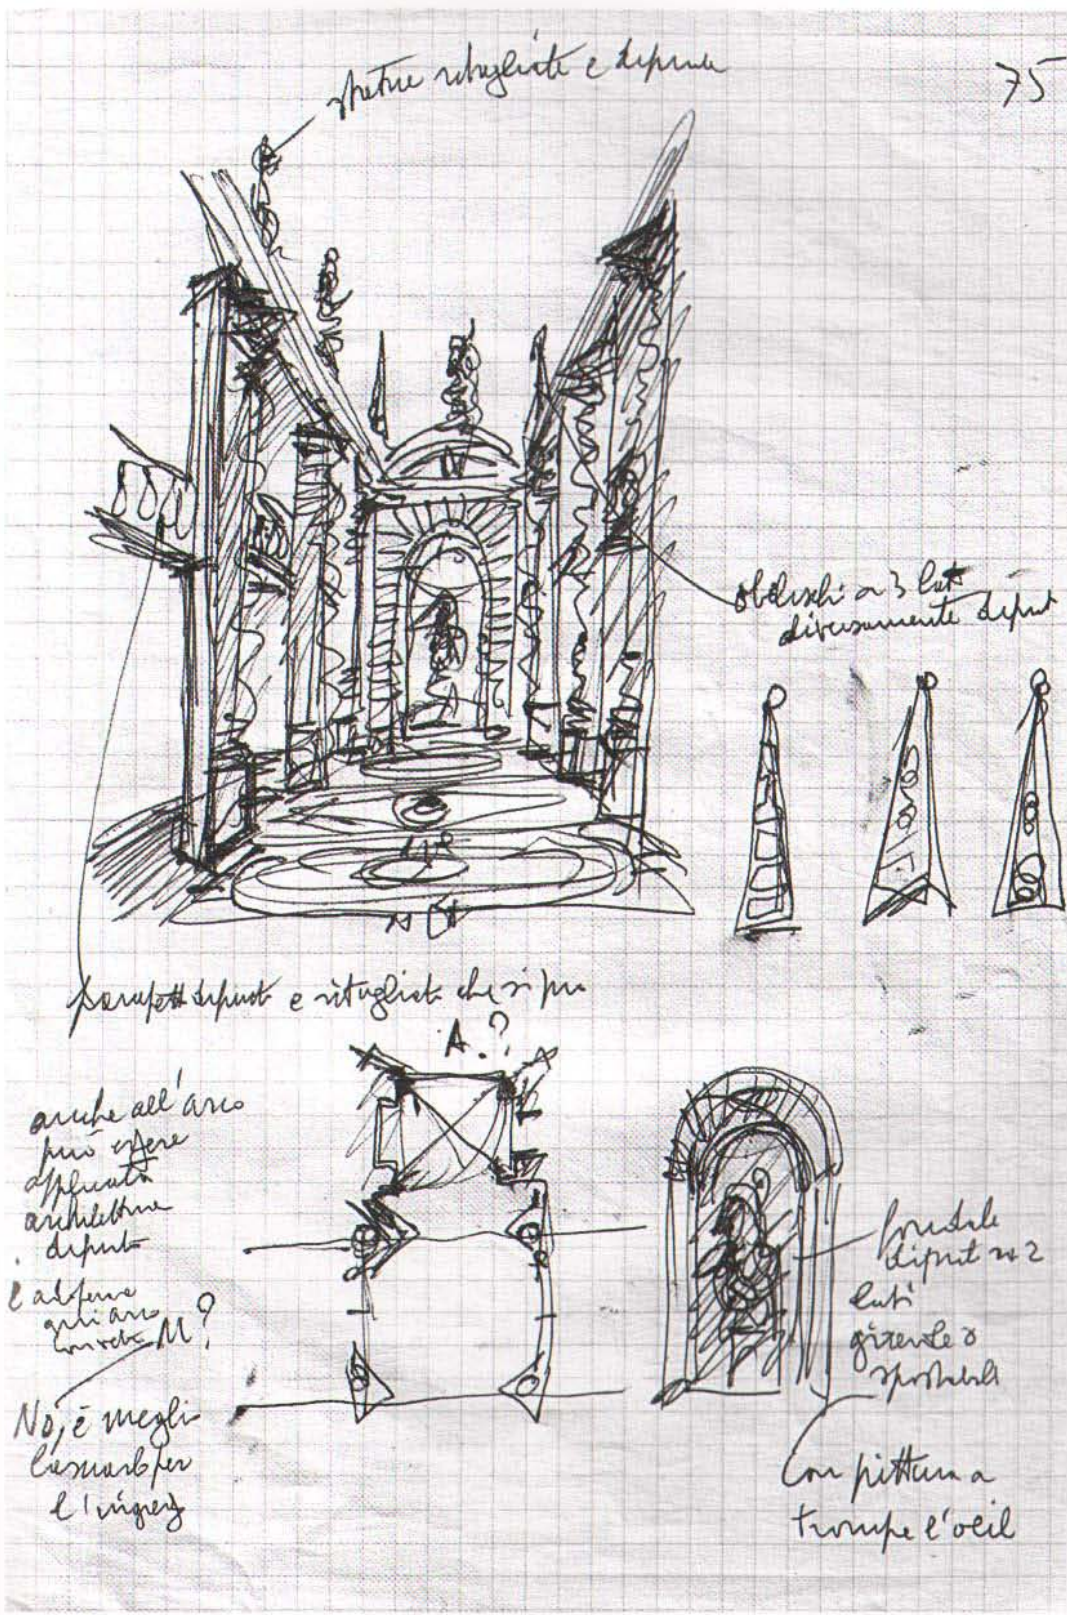 75
statue ritagliate e dipinte
obelischi a 3 lati
diversamente dipinti
parapetti dipinti e ritagliati che si può
A.?
anche all'arco
può essere
applicata
architettura
dipinta
M?
No, è meglio
lasciarlo per
l'ingresso
fondale
dipinto a 2
lati
girevole o
spostabile
Con pittura a
trompe l'oeil